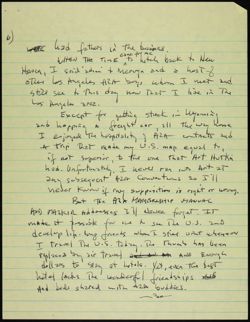 6)
had fathers in the business.
WHEN THE TIME came to hitch back to New
Haven, I said soon to George and a host of
other Los Angeles AZA boys, whom I meet and
still see to this day now that I live in the
Los Angeles area.
Except for getting stuck in Wyoming
and hopping a freight car all the way home
I enjoyed the hospitality of AZA contacts and
a trip that made my U.S. map equal to,
if not superior, to the one that Art
had. Unfortunately, I never ran into Art at
any subsequent AZA Conventions so I'll
never know if my supposition is right or wrong.
But the AZA
I'll never forget. It
made it possible for me to see the U.S. and
develop life-long friends when I since visit whenever
I travel the U.S. today. The thumb has been
replaced by air travel and enough
dollars to stay at hotels. Yet, even the best
hotel lacks the wonderful friendships
and beds shared with AZA buddies.